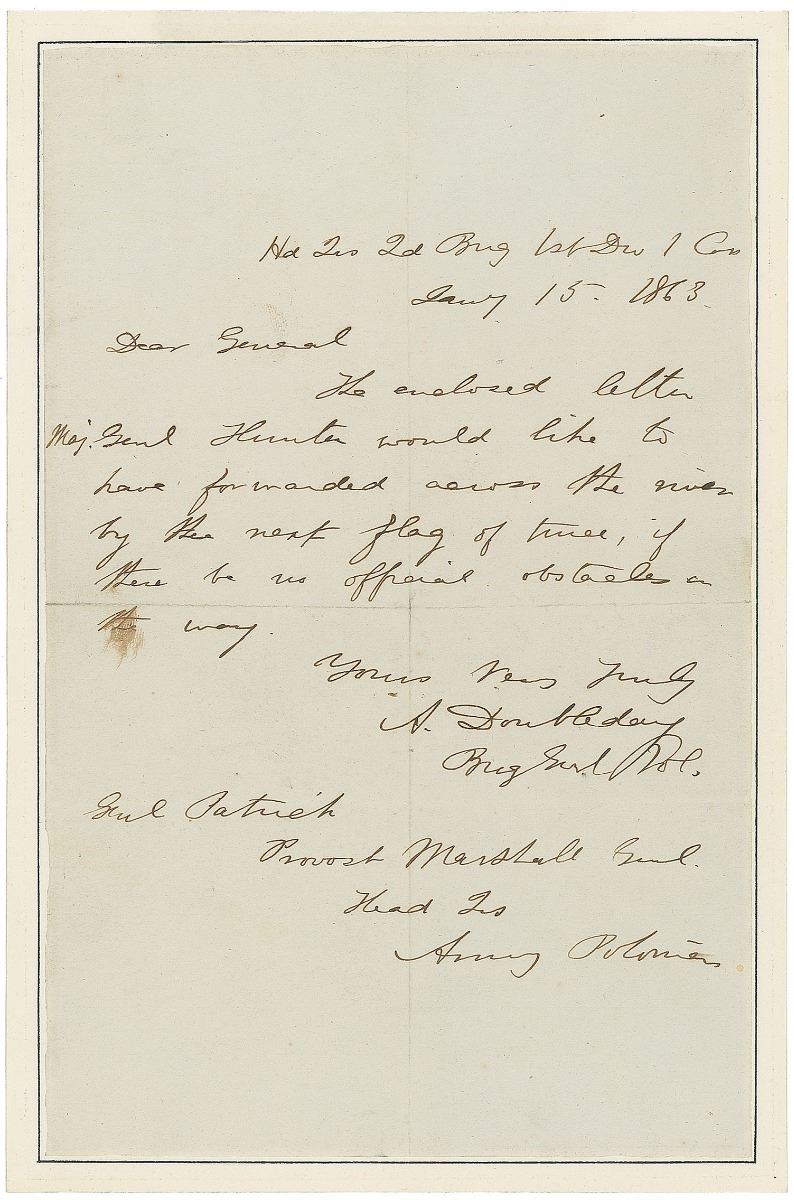 Hd Qrs 2d Brig 1st Div 1 Cor
Jany 15. 1863.
Dear General
The enclosed letter
Maj. Genl Hunter would like to
have forwarded across the river
by the next flag of truce, if
there be no official obstacles in
the way.
Yours Very Truly
A. Doubleday
Brig Genl Vol.
Genl Patrick
Provost Marshall Genl.
Head Qrs
Army Potomac